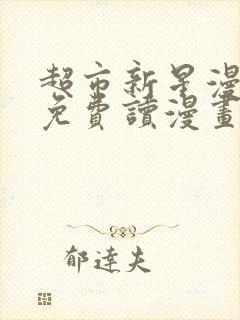 超市新星漫
免費讀漫畫
郁達夫